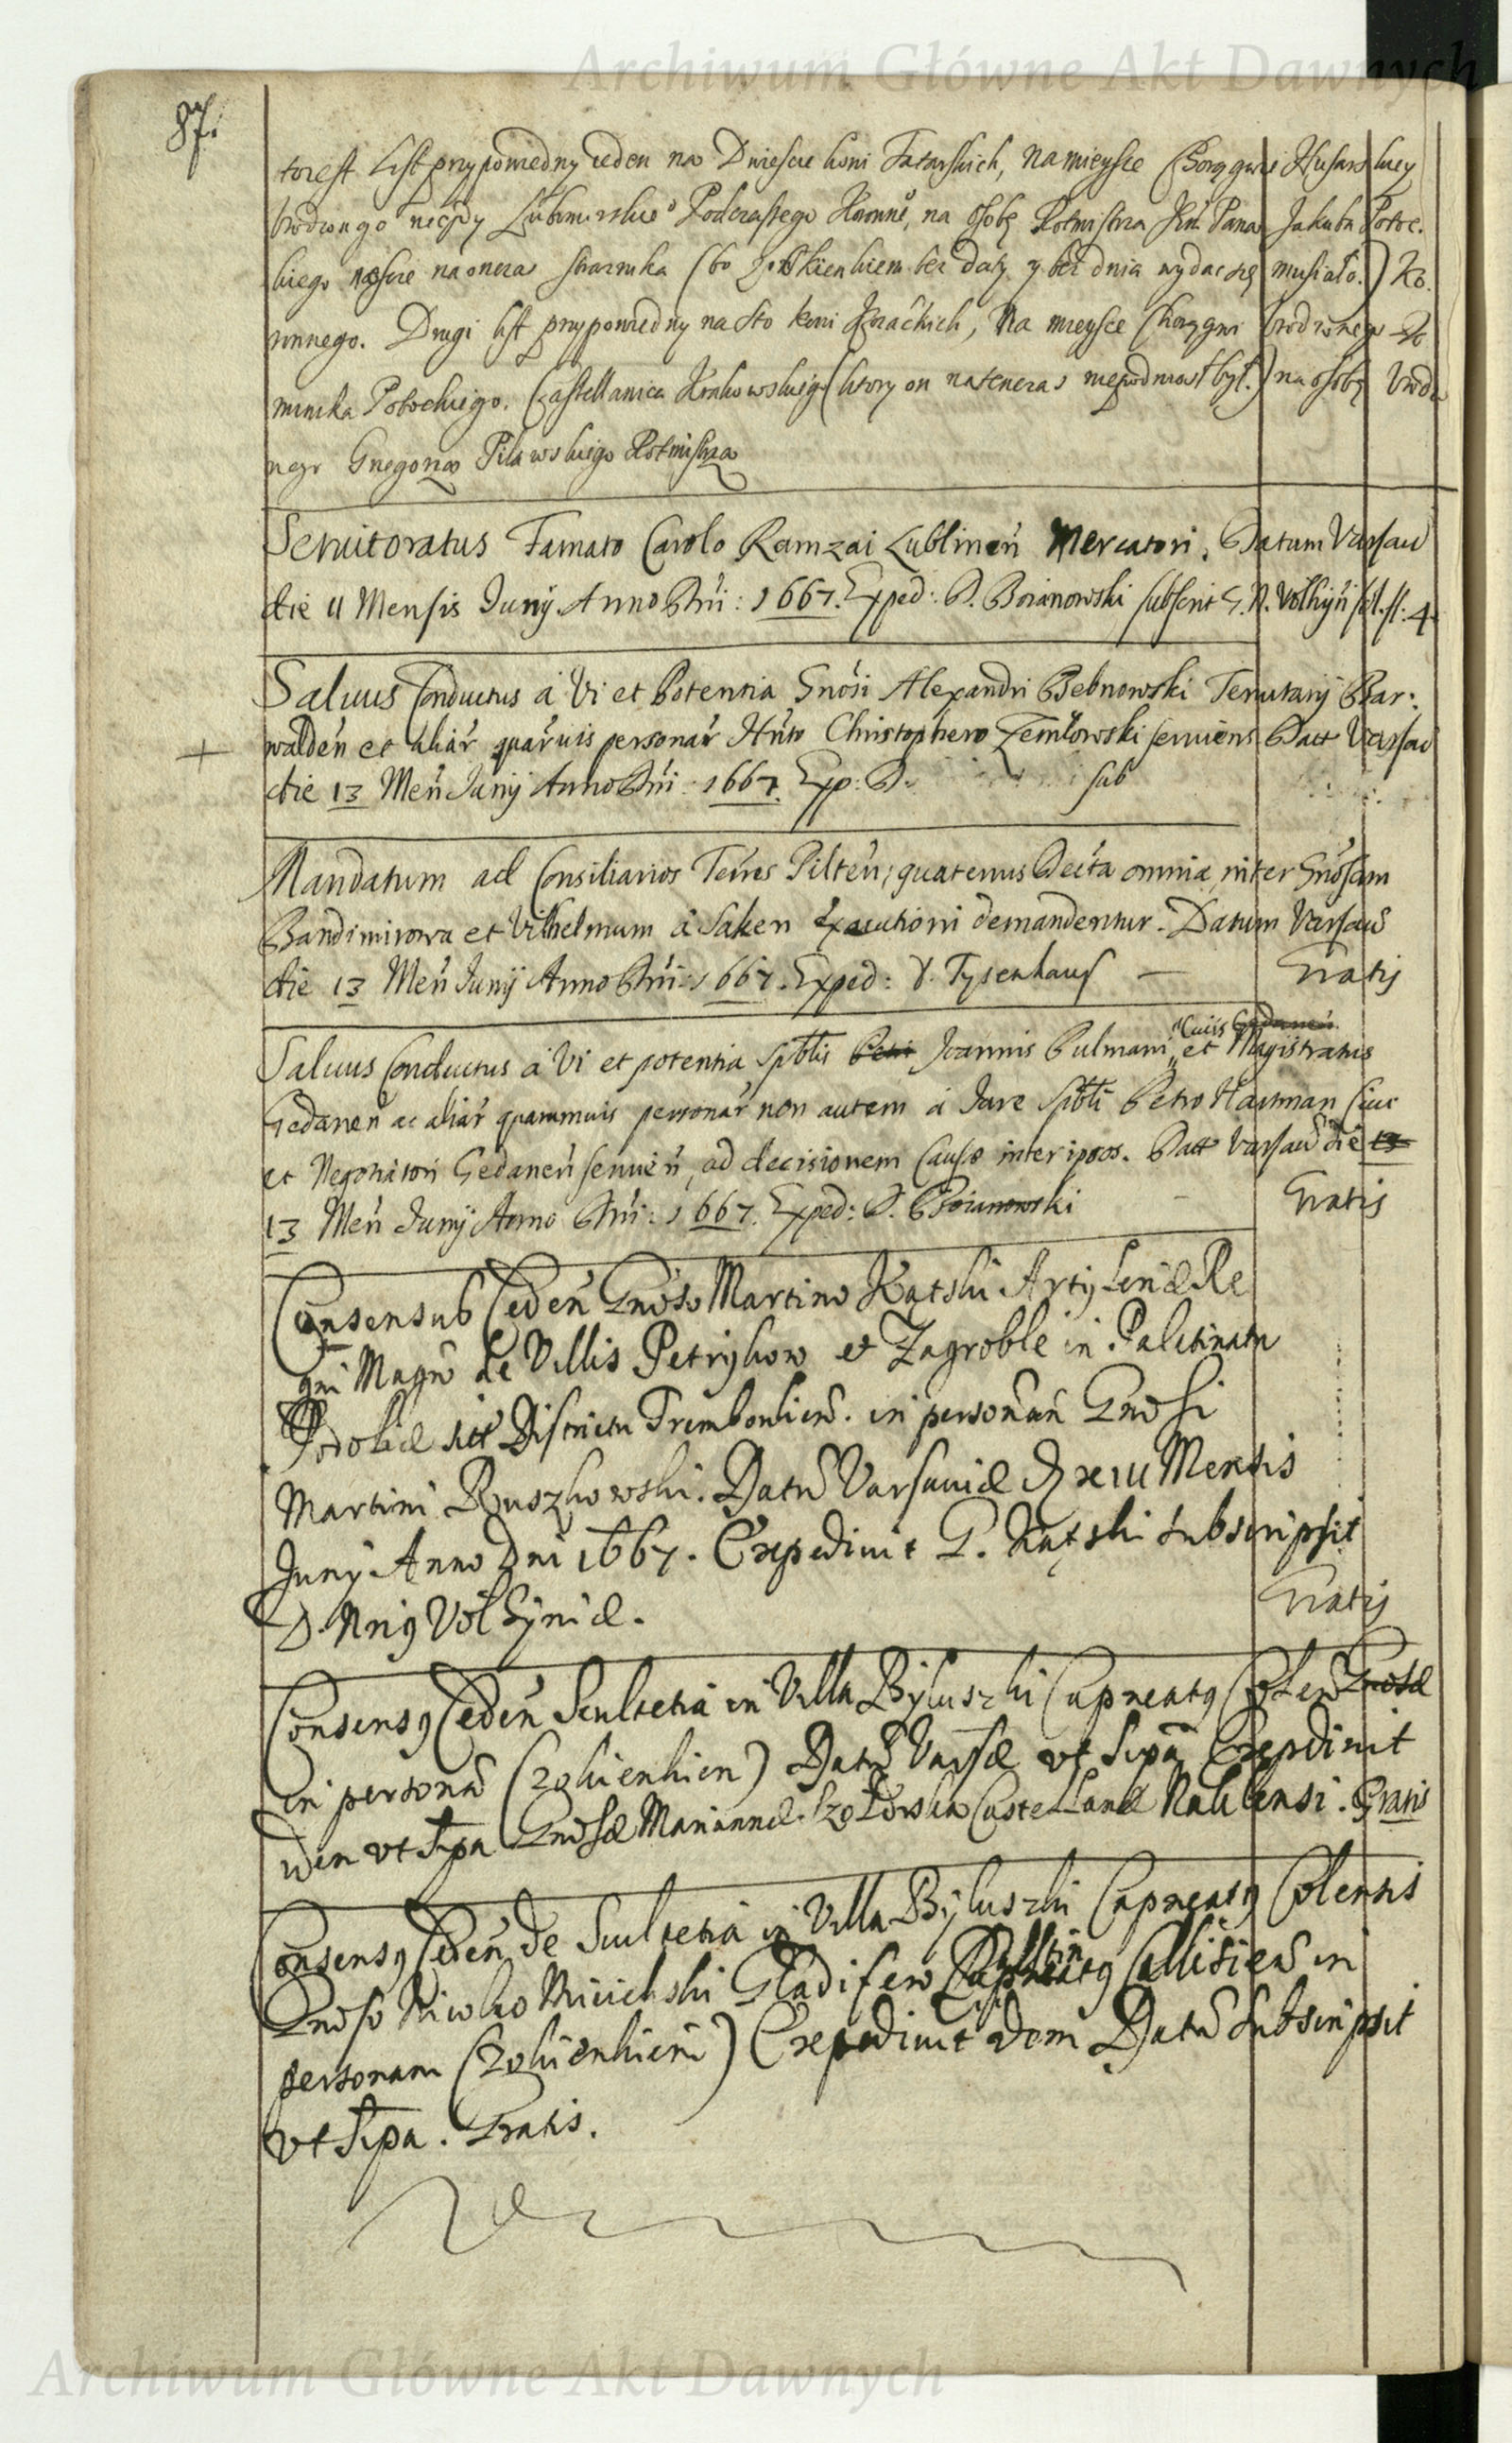 Archiwum Główne Akt Dawnych
87.
to iest List przypowiedny ieden na Dwiescie koni Tatarskich, na mieysce Chorągwi Husarskiey
Urodzonego niegdy Lubomirskieº Podczaszego Koronnº, na osobę Rotmistrza Jm. Pana Jakuba Potoc.
kiego na onczas (bo z okienkiem bez daty y bez dnia wydac się musiało.)
innego. Drugi list przypowiedny na sto koni Kozackich, Na mieysce Chorągwi Urodzonego Do
minika Potockiego. Castellanica Krakowskiego (ktory on natenczas niepodniosł był.) na osobę Urodzo
nego Gregorza Pilawskiego Rotmistrza
Seruitoratus Famato Carolo Ramzai Lublineń Mercatori. Datum Varsau
die 11 Mensis Junij Anno Dñi: 1667. Exped: D. Boianowski subscrit S. N. Volhyń sol. fl: 4.
Saluus Conductus a Vi et Potentia Gnosi Alexandri Bebnowski Tenutarij Bar:
walden et aliar quaruis personar Hnto Christophero Zemłowski seruiens Datt Varsau
die 13 Meń Junij Anno Dñi: 1667. Exp: D. sub
Mandatum ad Consiliarios Terres Pilteń, quatenus Decta omnia inter Gnosam
Bandimirowa et Vilhelmum a Saken Executioni demandentur. Datum Varsau
die 13 Meń Junij Anno Dñi: 1667. Exped: D. Tysenhaus — Gratis
Saluus Conductus a Vi et potentia Spblis Petri Joannis Pulmani "Ciuis Gedaneń et Magistratus
Gedaneń ac aliar quarumuis personar non autem a Jure Spbli Petro Hartman Ciui
et Negotiatori Gedaneń seruień, ad decisionem Causæ inter ipsos. Datt Varsau die 13
13 Meń Junij Anno Dñi: 1667. Exped: D. Boianowski - Gratis
Consensus Cedeń Gnoso Martino Kątski Artyleriæ Re
gni Magrō de Villis Petrykow et Zagroble in Palatinatu
Podoliæ sitt Districtu Trembouliens. in personam Gnosi
Martini Ruszkowski. Datū Varsauiæ D XIII Mensis
Junij Anno Dni 1667. Expediuit G. Kątski Subscripsit
D. Nrius Volhyniæ. Gratis
Consensus Cedeń Scultetiā in Villa Byluszki Capneatus Coleń Gnosæ
in personā (zokienkien) Datū Varsæ vt Supā Expediuit
idem vt Supa Gnosæ Mariannæ Castellanæ Naklensi. Gratis
Consensus Cedeń de Scultetia in Villa Byluszki Capneatus Colensis
Gnoso Gladifero Calisień in
personam (zokienkiem) Expediuit idem Datū Subscripsit
vt Supa. Gratis.
Archiwum Główne Akt Dawnych